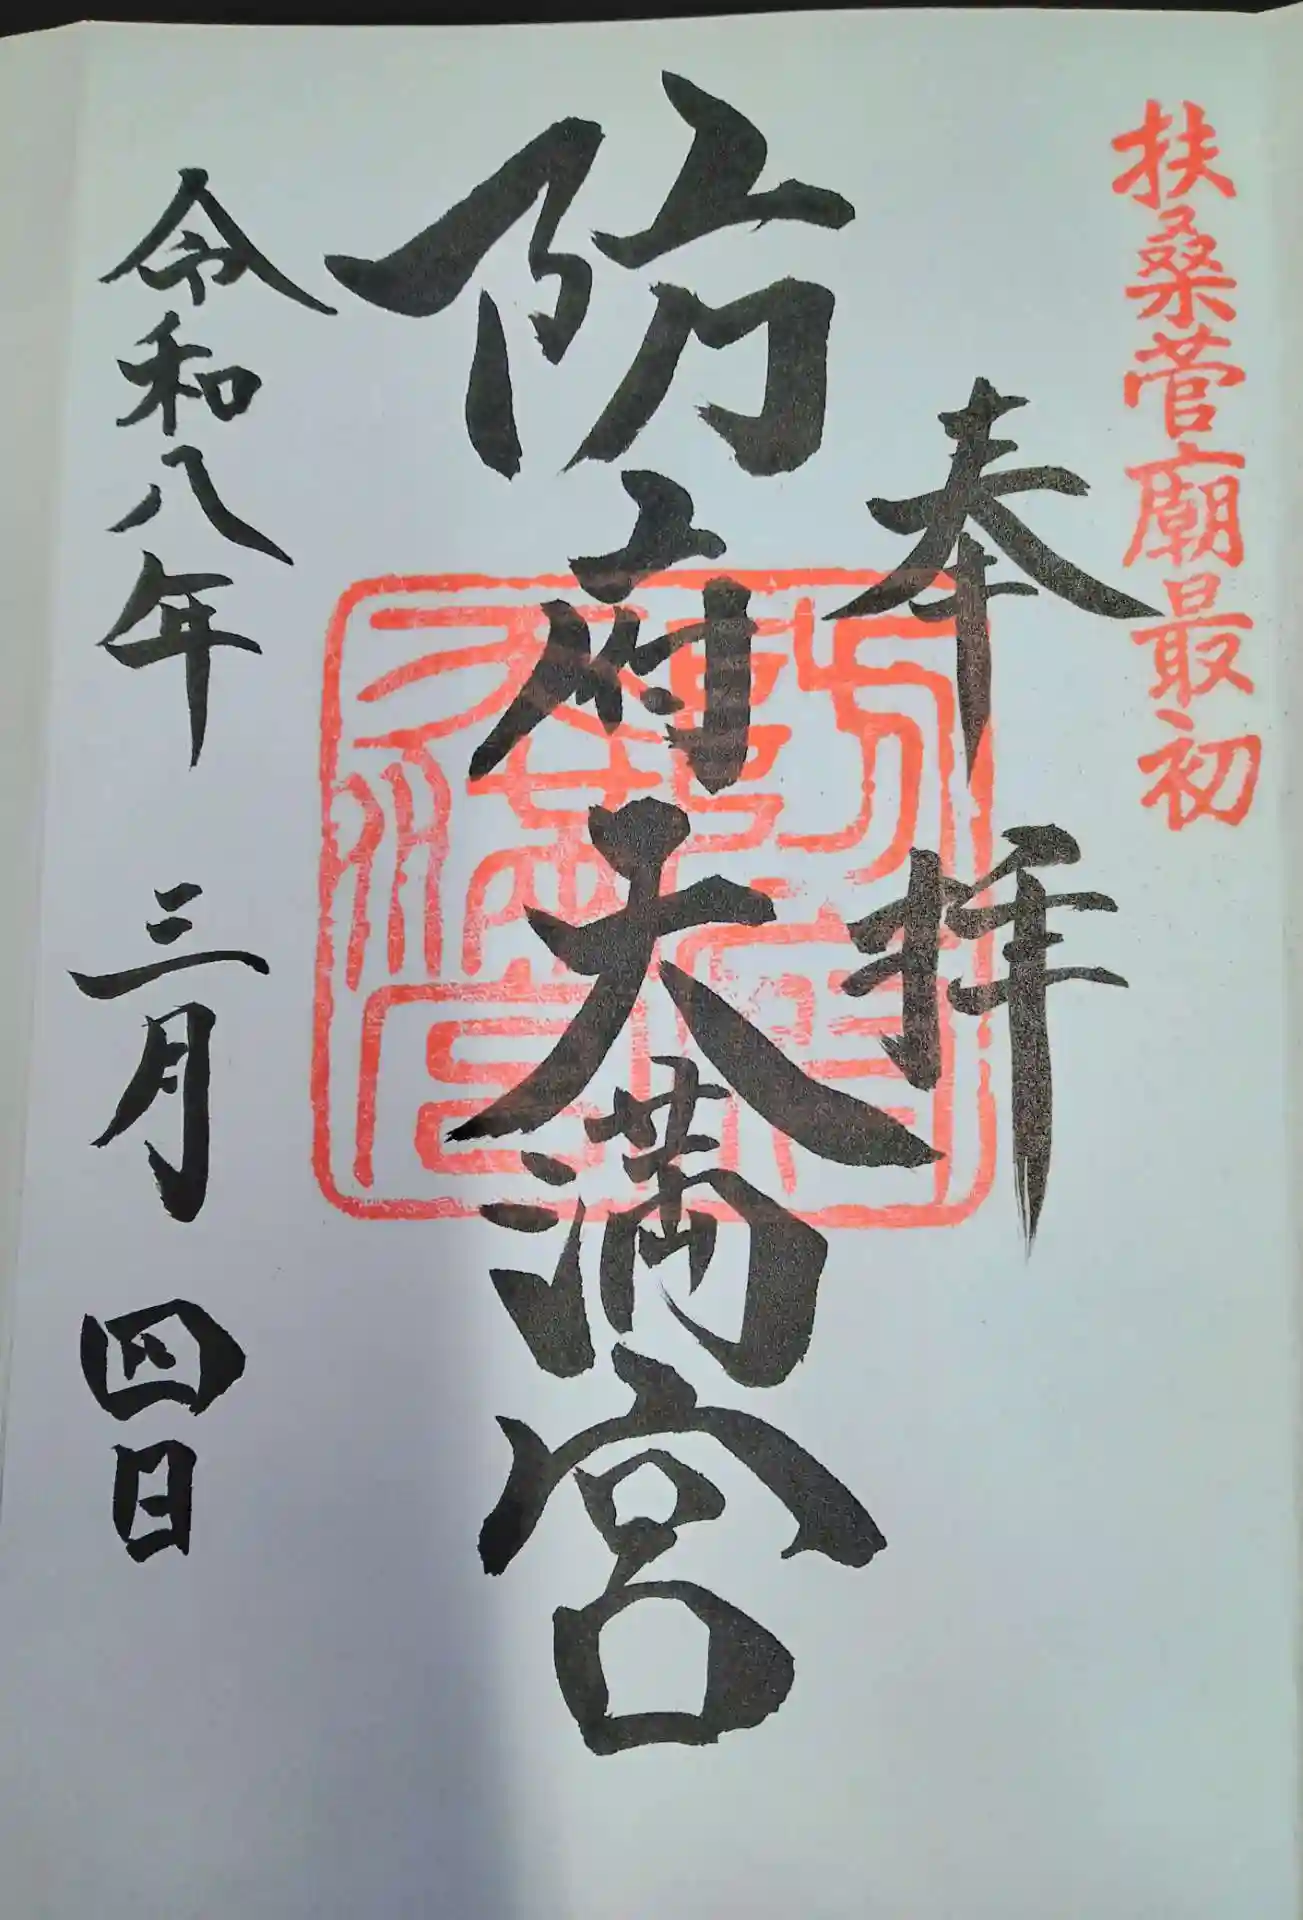 扶桑菅廟最初
奉拝
防府天満宮
令和八年 三月 四日